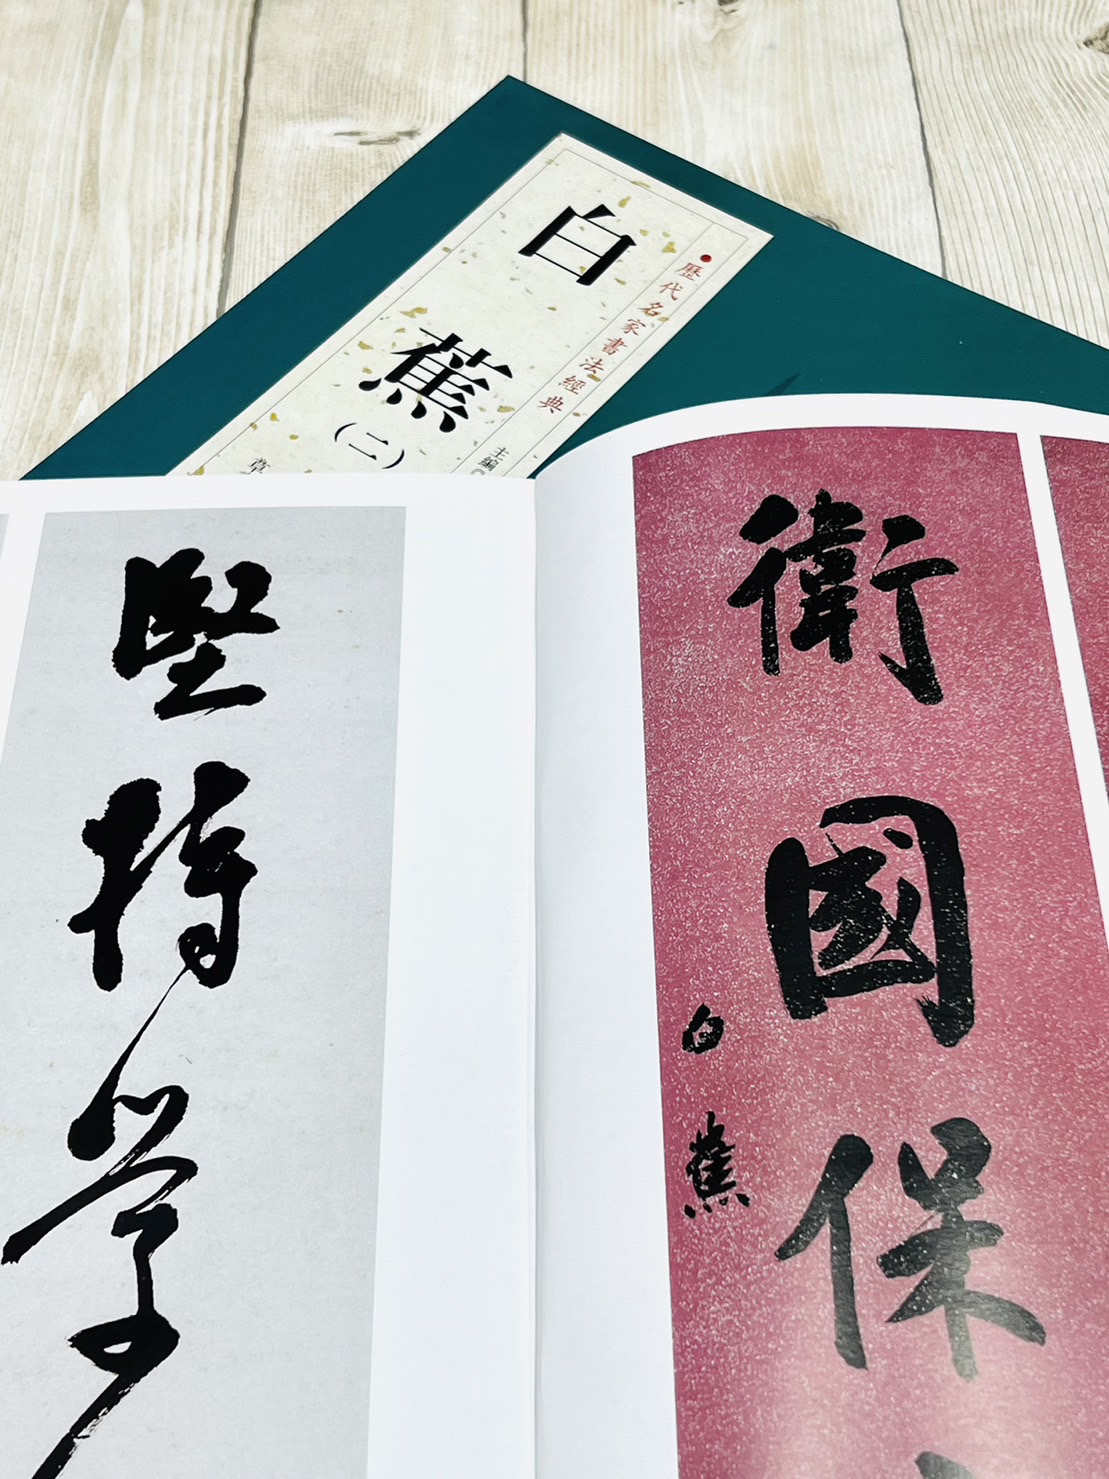 歷代名家書法經典
白蕉
(二)
主編
草
衛國保
白蕉
堅持學